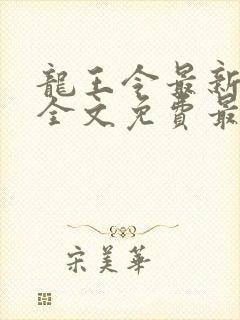 龍王令最新
全文免費最
宋美華